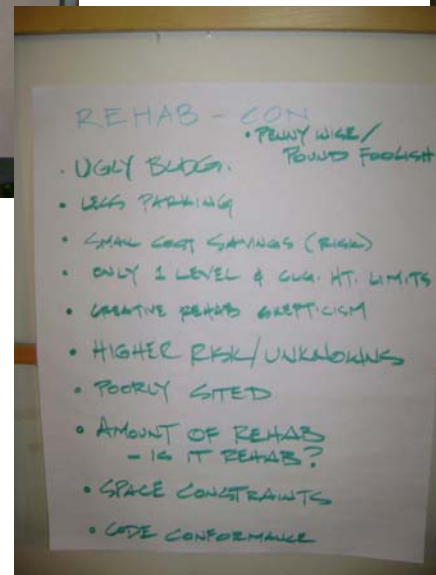 REHAB - CON
• PENNY WISE/
POUND FOOLISH
• UGLY BLDG.
• LESS PARKING
• SMALL COST SAVINGS (RISK)
• ONLY 1 LEVEL & CLG. HT. LIMITS
• CREATIVE REHAB SKEPTICISM
• HIGHER RISK/UNKNOWNS
• POORLY SITED
• AMOUNT OF REHAB
- IS IT REHAB?
• SPACE CONSTRAINTS
• CODE CONFORMANCE